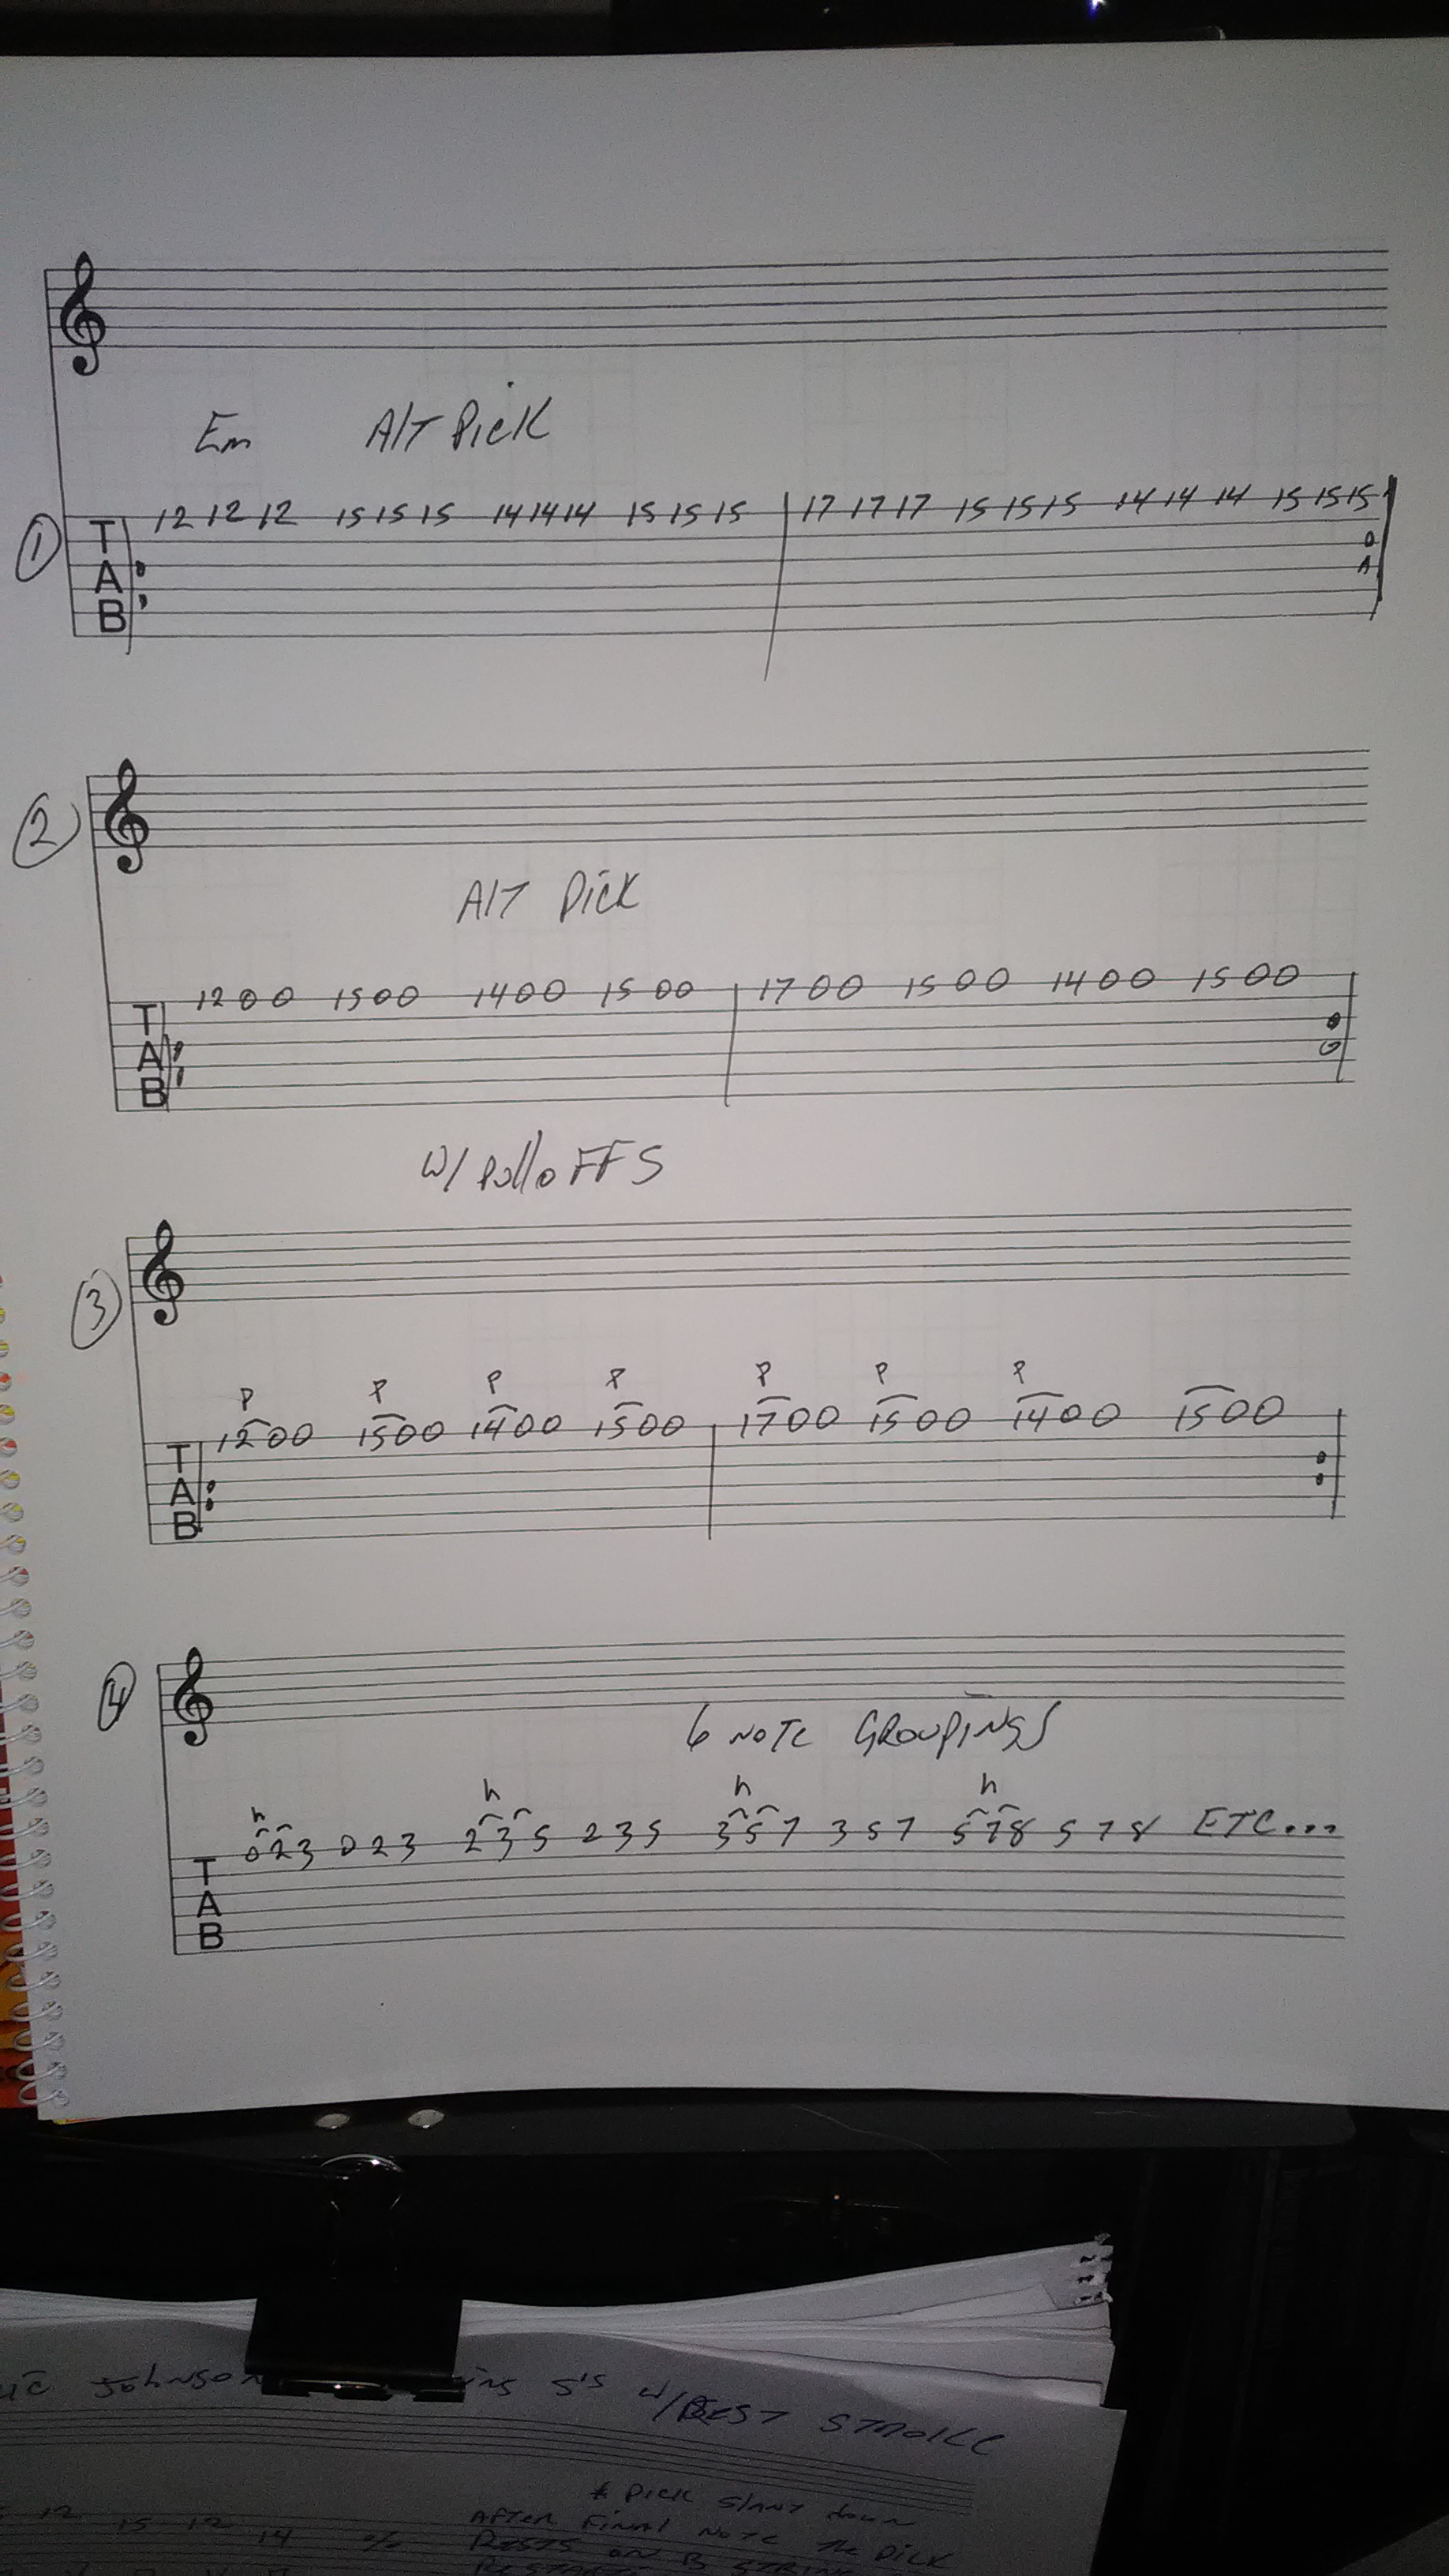 Em Alt Pick
① 12 12 12 15 15 15 14 14 14 15 15 15 17 17 17 15 15 15 14 14 14 15 15 15
T
A
B
②
Alt Pick
12 0 0 15 0 0 14 0 0 15 0 0 17 0 0 15 0 0 14 0 0 15 0 0
T
A
B
W/ pulloFFS
③
P P P P P P P
12 0 0 15 0 0 14 0 0 15 0 0 17 0 0 15 0 0 14 0 0 15 0 0
T
A
B
④
6 NOTE GROUPINGS
h h h h
0 2 3 0 2 3 2 3 5 2 3 5 3 5 7 3 5 7 5 7 8 5 7 8 ETC...
T
A
B
Johnson 5's w/REST STROKE
* Pick slant down
12 AFTER FINAL NOTE The Pick
15 12 14 % RESTS ON B STRING